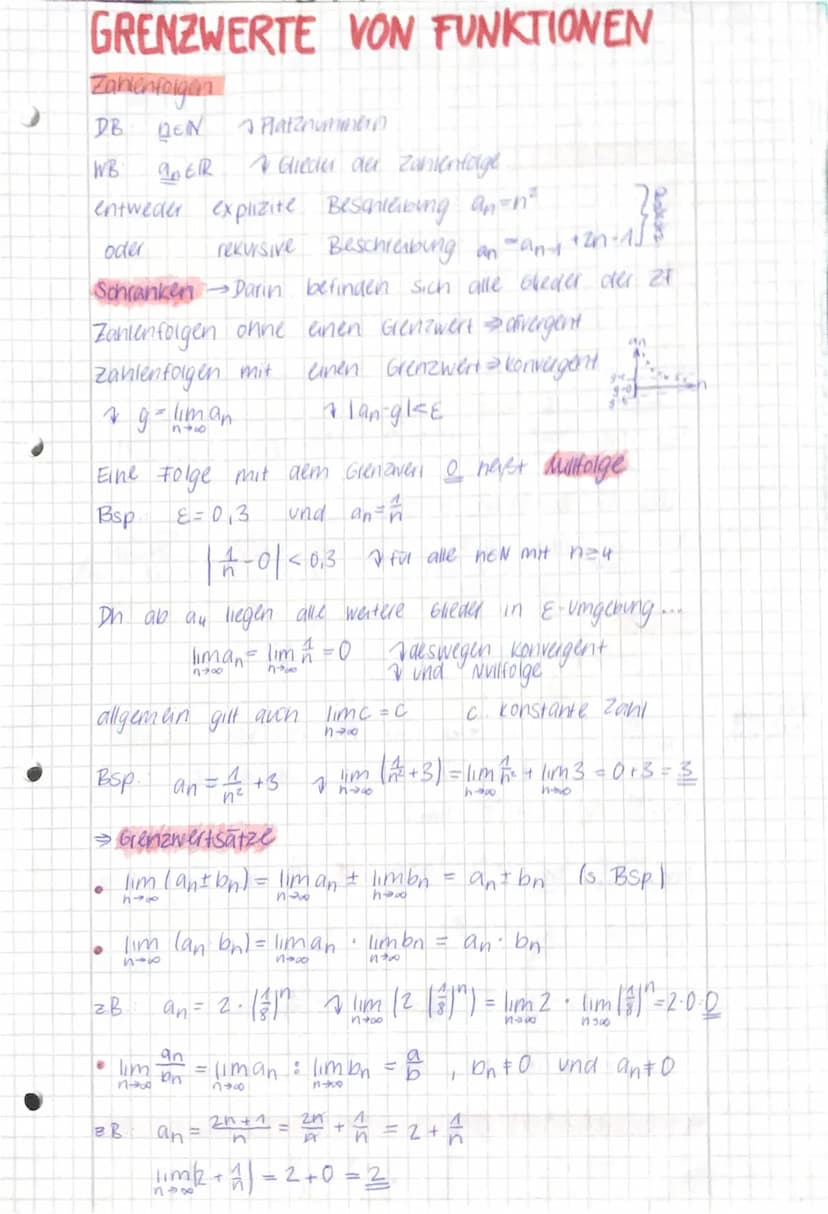 GRENZWERTE VON FUNKTIONEN
Zahlenfolgen
DB: n∈ℕ ↴ Platznummern
WB: aₙ∈ℝ ↴ Glieder der Zahlenfolge
entweder explizite Beschreibung aₙ=n²
oder rekursive Beschreibung aₙ=aₙ₋₁+2n-1
Schranken → Darin befinden sich alle Glieder der ZF
Zahlenfolgen ohne einen Grenzwert ⇒ divergent
Zahlenfolgen mit einen Grenzwert ⇒ konvergent
↴ g = lim n→∞ aₙ ↴ |aₙ-g|<ε
Eine Folge mit dem Grenzwert 0 heißt Nullfolge
Bsp. ε=0,3 und aₙ=1/n
|1/n - 0| < 0,3 ↴ für alle n∈ℕ mit n≥4
Dh. ab a₄ liegen alle weitere Glieder in ε-Umgebung...
lim n→∞ aₙ = lim n→∞ 1/n = 0 ↴ deswegen konvergent
↴ und Nullfolge
allgemein gilt auch lim n→∞ c = c c: konstante Zahl
Bsp. aₙ = 1/n² + 3 ↴ lim n→∞ (1/n² + 3) = lim n→∞ 1/n² + lim n→∞ 3 = 0+3 = 3
⇒ Grenzwertsätze
• lim n→∞ (aₙ ± bₙ) = lim n→∞ aₙ ± lim n→∞ bₙ = aₙ ± bₙ (s. Bsp.)
• lim n→∞ (aₙ bₙ) = lim n→∞ aₙ · lim n→∞ bₙ = aₙ · bₙ
zB: aₙ = 2·(1/8)ⁿ ↴ lim n→∞ (2 (1/8)ⁿ) = lim n→∞ 2 · lim n→∞ (1/8)ⁿ = 2·0 0
• lim n→∞ aₙ/bₙ = lim n→∞ aₙ : lim n→∞ bₙ = a/b , bₙ≠0 und aₙ≠0
zB: aₙ = 2n+1/n = 2n/n + 1/n = 2 + 1/n
lim n→∞ (2 + 1/n) = 2+0 = 2